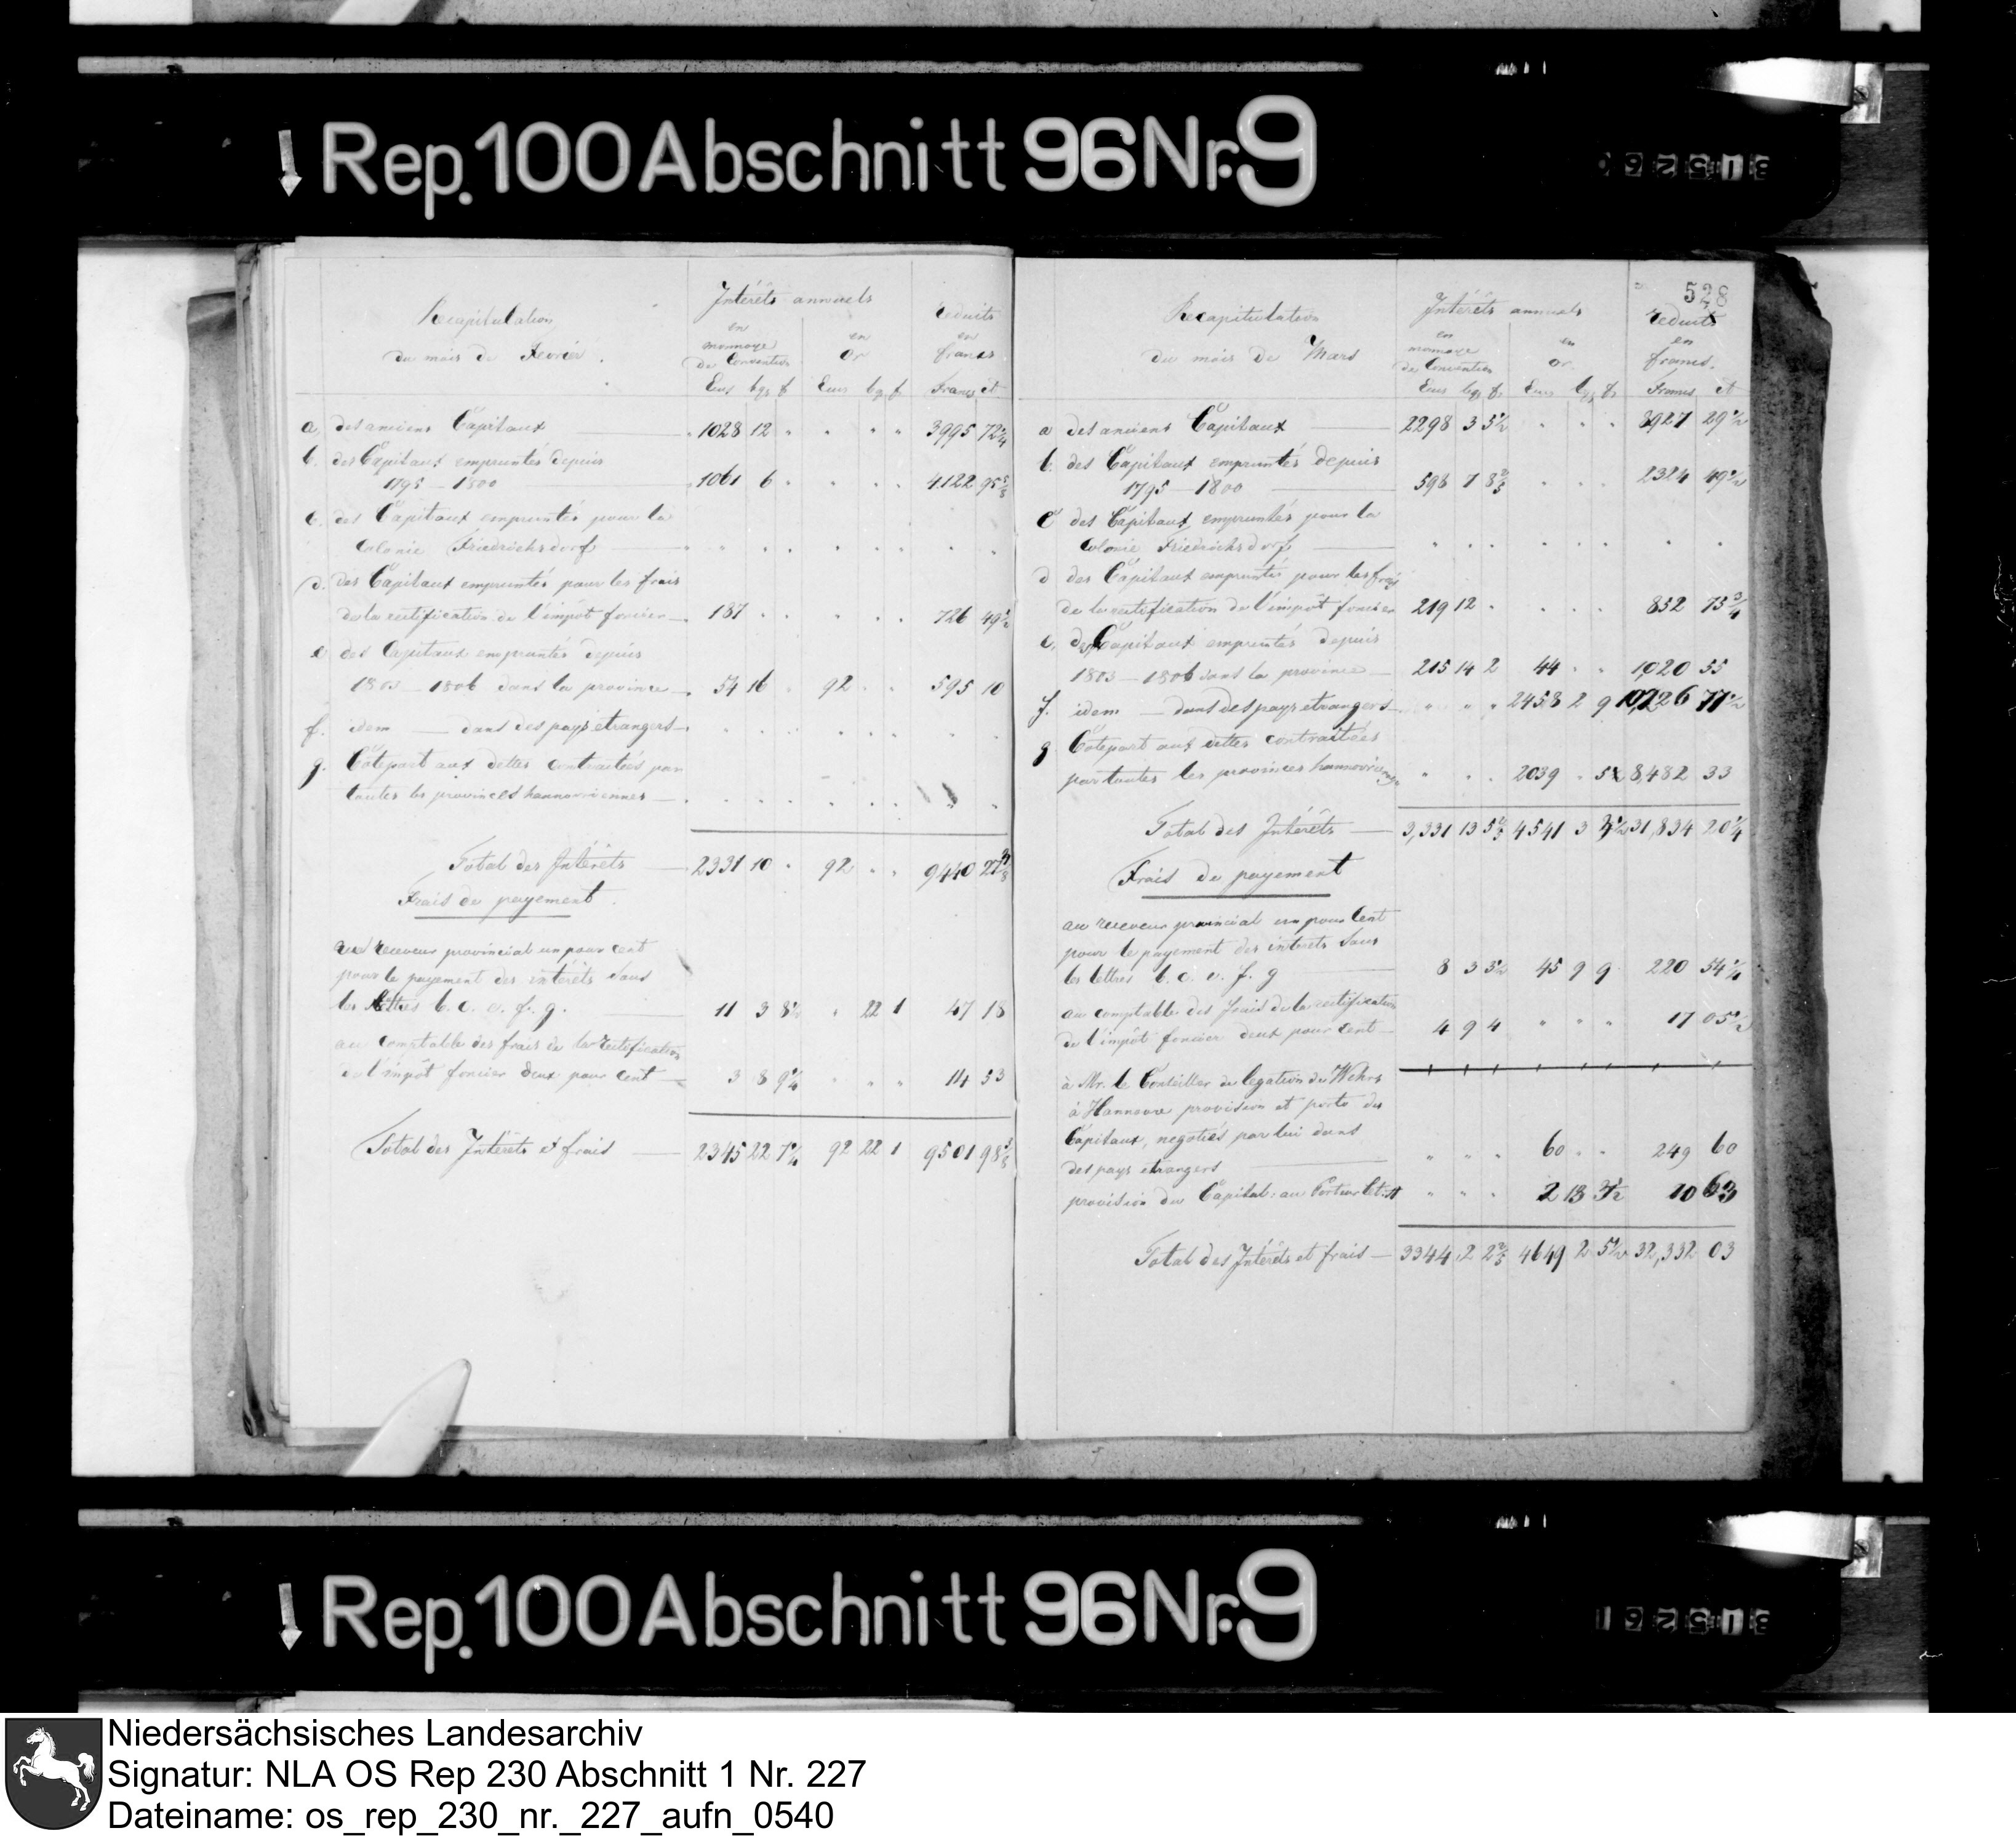 Rep. 100 Abschnitt 96 Nr. 9
Recapitulation
du mois de Fevrier.
Intérêts annuels
reduits
en monnoye de Convention
en Or
en francs
Ecus bgs ₰ Ecus bgs ₰ Francs ct
a. des anciens Capitaux 1028 12 " " " " 3995 72 1/4
b. des Capitaux empruntés depuis
1795 — 1800 1061 6 " " " " 4122 95 5/8
c. des Capitaux empruntés pour la
Colonie Friedrichsdorf " " " " " " " "
d. des Capitaux empruntés pour les frais
de la rectification de l'impôt foncier 187 " " " " " 726 49 1/2
e. des Capitaux empruntés depuis
1803 — 1806 dans la province 54 16 " 92 " " 595 10
f. idem — dans des pays etrangers " " " " " " " "
g. Côtepart aux dettes contractées par
toutes les provinces hannovriennes " " " " " " " "
Total des Intérêts 2331 10 " 92 " " 9440 27
Frais de payement.
au receveur provincial un pour cent
pour le payement des intérêts sous
les lettres b. c. e. f. g. 11 3 8 1/2 " 22 1 47 18
au comptable des frais de la rectification
de l'impôt foncier deux pour cent 3 8 9 1/4 " " " 14 53
Total des Intérêts et frais 2345 22 7 92 22 1 9501 98 3/8
528
Recapitulation
du mois de Mars
Intérêts annuels
reduits
en monnoye de Convention
en or
en francs.
Ecus bgs ₰ Ecus bgs ₰ Francs ct
a des anciens Capitaux 2298 3 5 1/2 " " " 8927 29 1/2
b. des Capitaux empruntés depuis
1795 — 1800 598 7 8 2/3 " " " 2324 49 1/2
c des Capitaux empruntés pour la
Colonie Friedrichsdorf " " " " " " " "
d des Capitaux empruntés pour les frais
de la rectification de l'impôt foncier 219 12 " " " " 852 75 3/4
e. des Capitaux empruntés depuis
1803 — 1806 dans la province 215 14 2 44 " " 1020 55
f. idem — dans des pays etrangers " " " 2458 2 9 10,226 77 1/2
g Côtepart aux dettes contractées
par toutes les provinces hannovriennes " " " 2039 " 5 1/2 8482 33
Total des Intérêts 3,331 13 5 2/3 4541 3 31,834 20 1/4
Frais de payement
au receveur provincial un pour Cent
pour le payement des intérets sous
les lettres b. c. e. f. g 8 3 3 1/2 45 9 9 220 54 1/4
au comptable des frais de la rectification
de l'impôt foncier deux pour cent 4 9 4 " " " 17 05 1/2
à Mr. le Conseiller de legation de Wehrs
à Hannovre provision et porto des
Capitaux, negotiés par lui dans
des pays etrangers " " " 60 " " 249 60
provision du Capital: au Porteur " " " 2 13 3 1/2 10 63
Total des Intérêts et frais 3344 2 2 2/3 4649 2 5 1/2 32,332 03
Rep. 100 Abschnitt 96 Nr. 9
Niedersächsisches Landesarchiv
Signatur: NLA OS Rep 230 Abschnitt 1 Nr. 227
Dateiname: os_rep_230_nr._227_aufn_0540